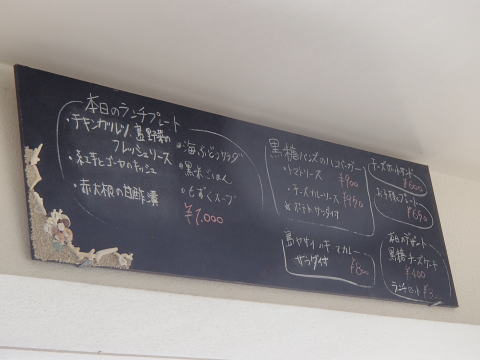 本日のランチプレート
・チキンカツレツ 島野菜の
フレッシュソース
・紅芋とゴーヤのキッシュ
・赤大根の甘酢漬
・海ぶどうサラダ
・黒米ごはん
・もずくスープ
¥1,000
黒糖バンズのハンバーガー
・トマトソース
¥900
・チーズカレーソース ¥950
サラダ付
島やさいの カレー
サラダ付 ¥800
チーズ
¥600
お子様プレート
¥650
本日のデザート
黒糖チーズケーキ
¥400
ランチセット